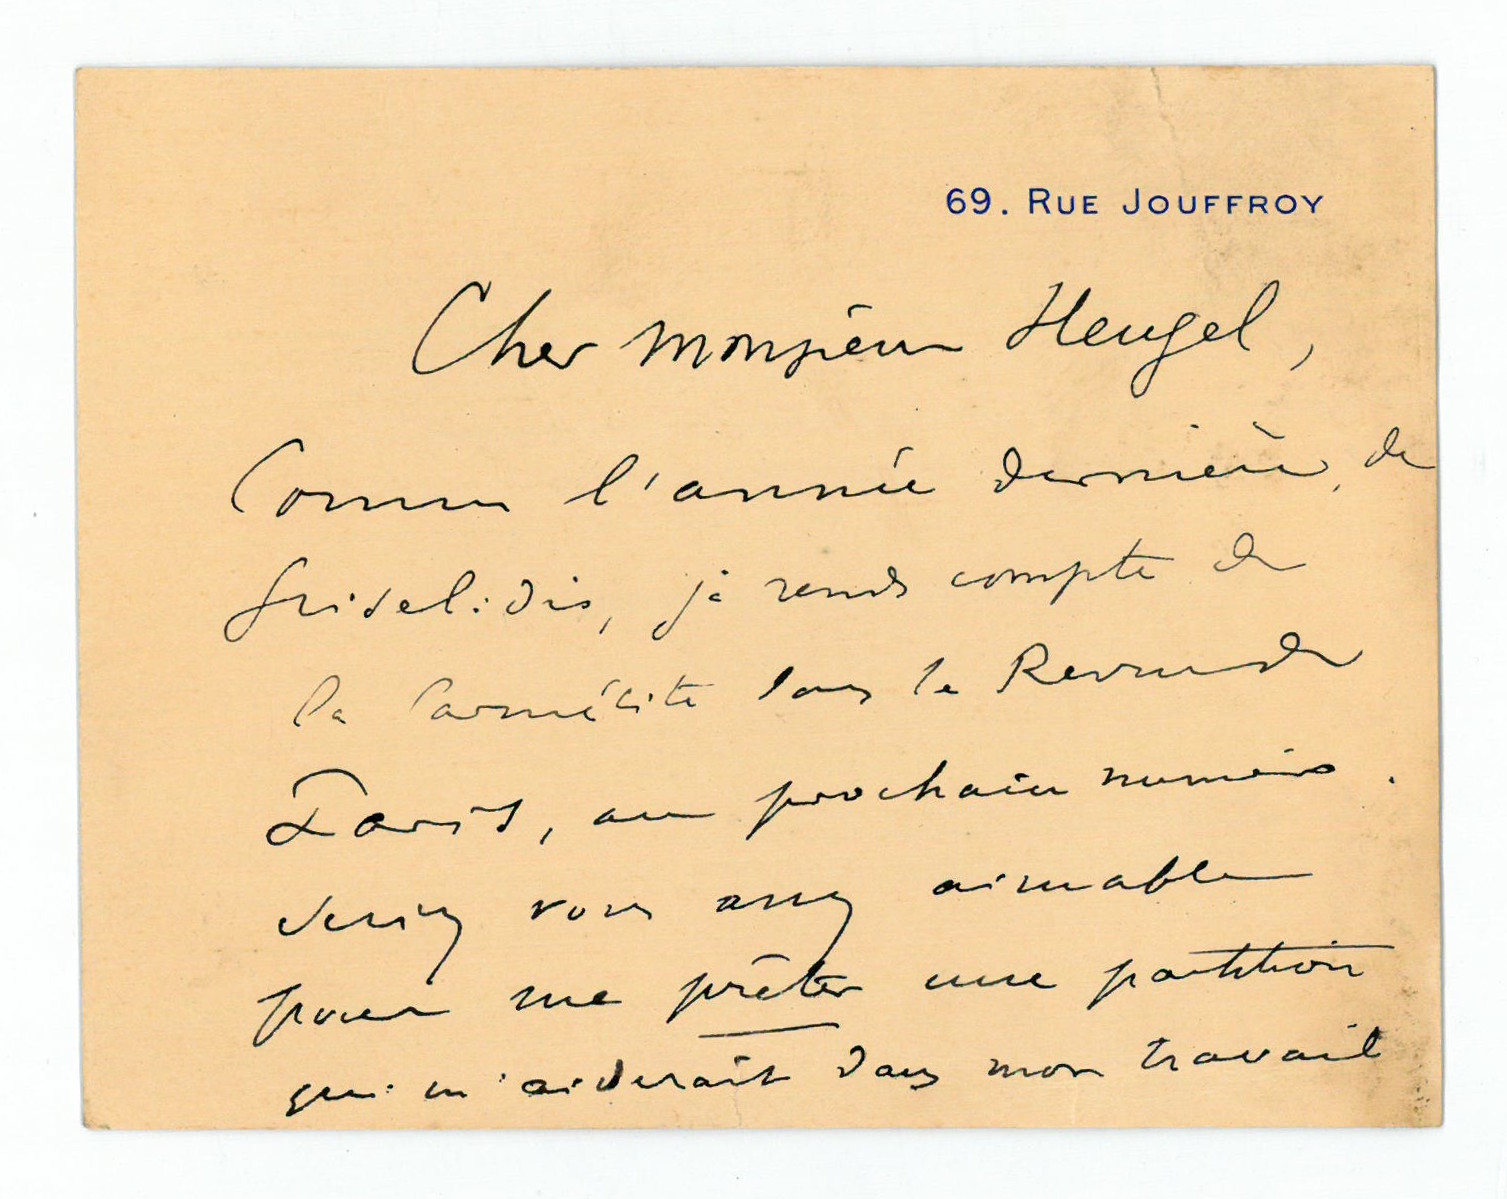 69. RUE JOUFFROY
Cher Monsieur Heugel,
Comme l'année dernière, de
Griselidis, je rends compte de
la Carmélite dans la Revue de
Paris, au prochain numéro.
seriez vous assez aimable
pour me prêter une partition
qui m'aiderait dans mon travail